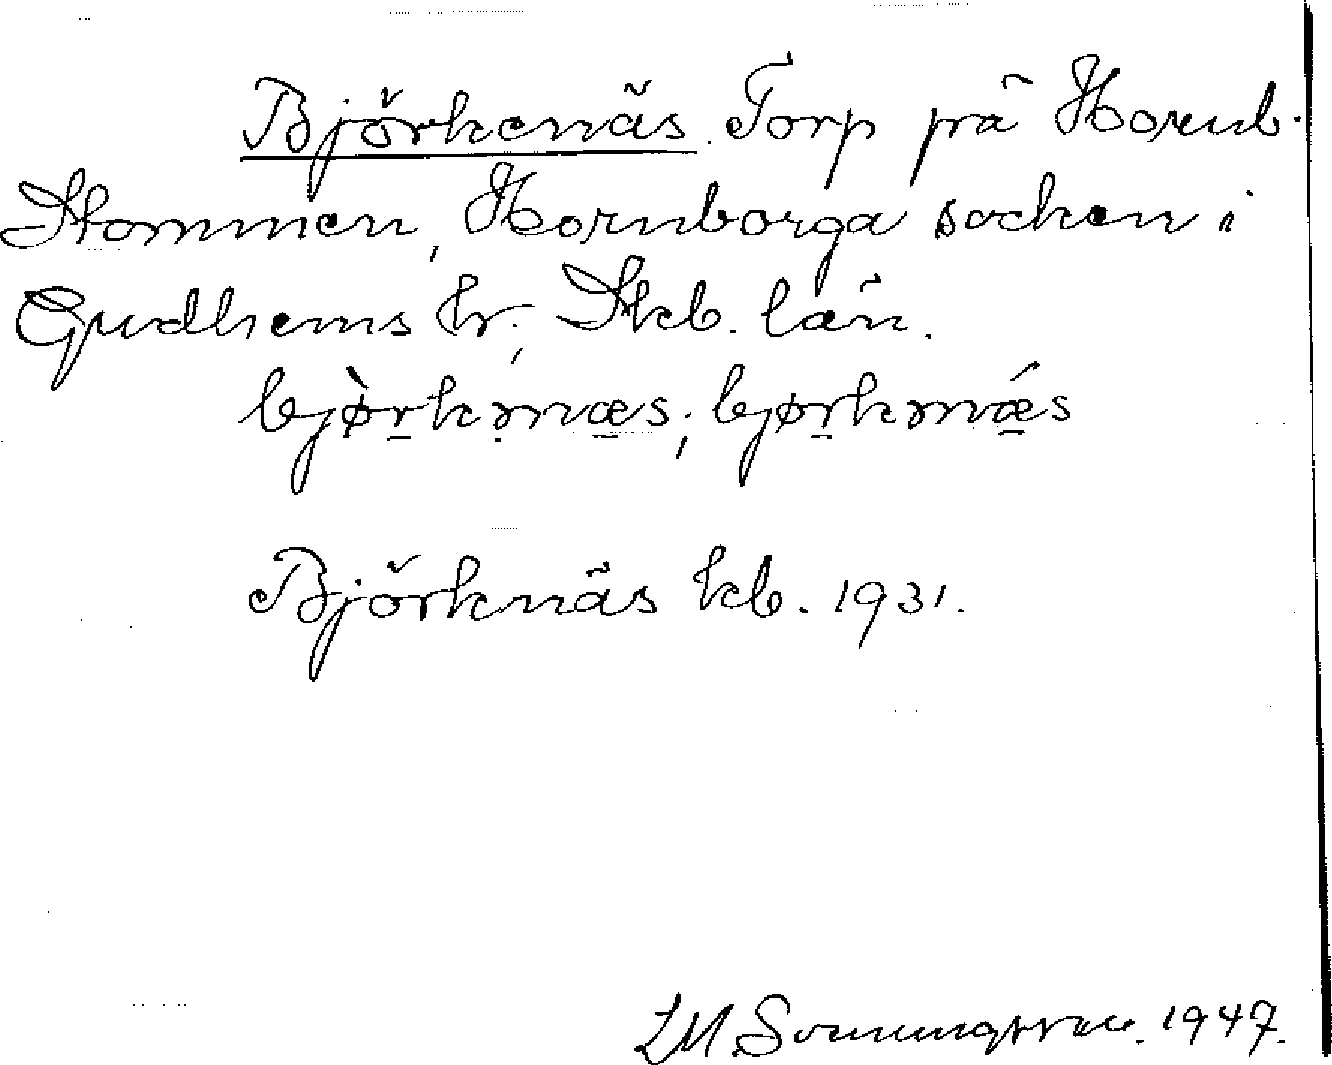 Björkenäs. Torp på Hornb.
Stommen, Hornborga socken i
Gudhems hr., Skb. län.
bjø̀rkənæs; bjørknǽs
Björknäs kb. 1931.
1947.